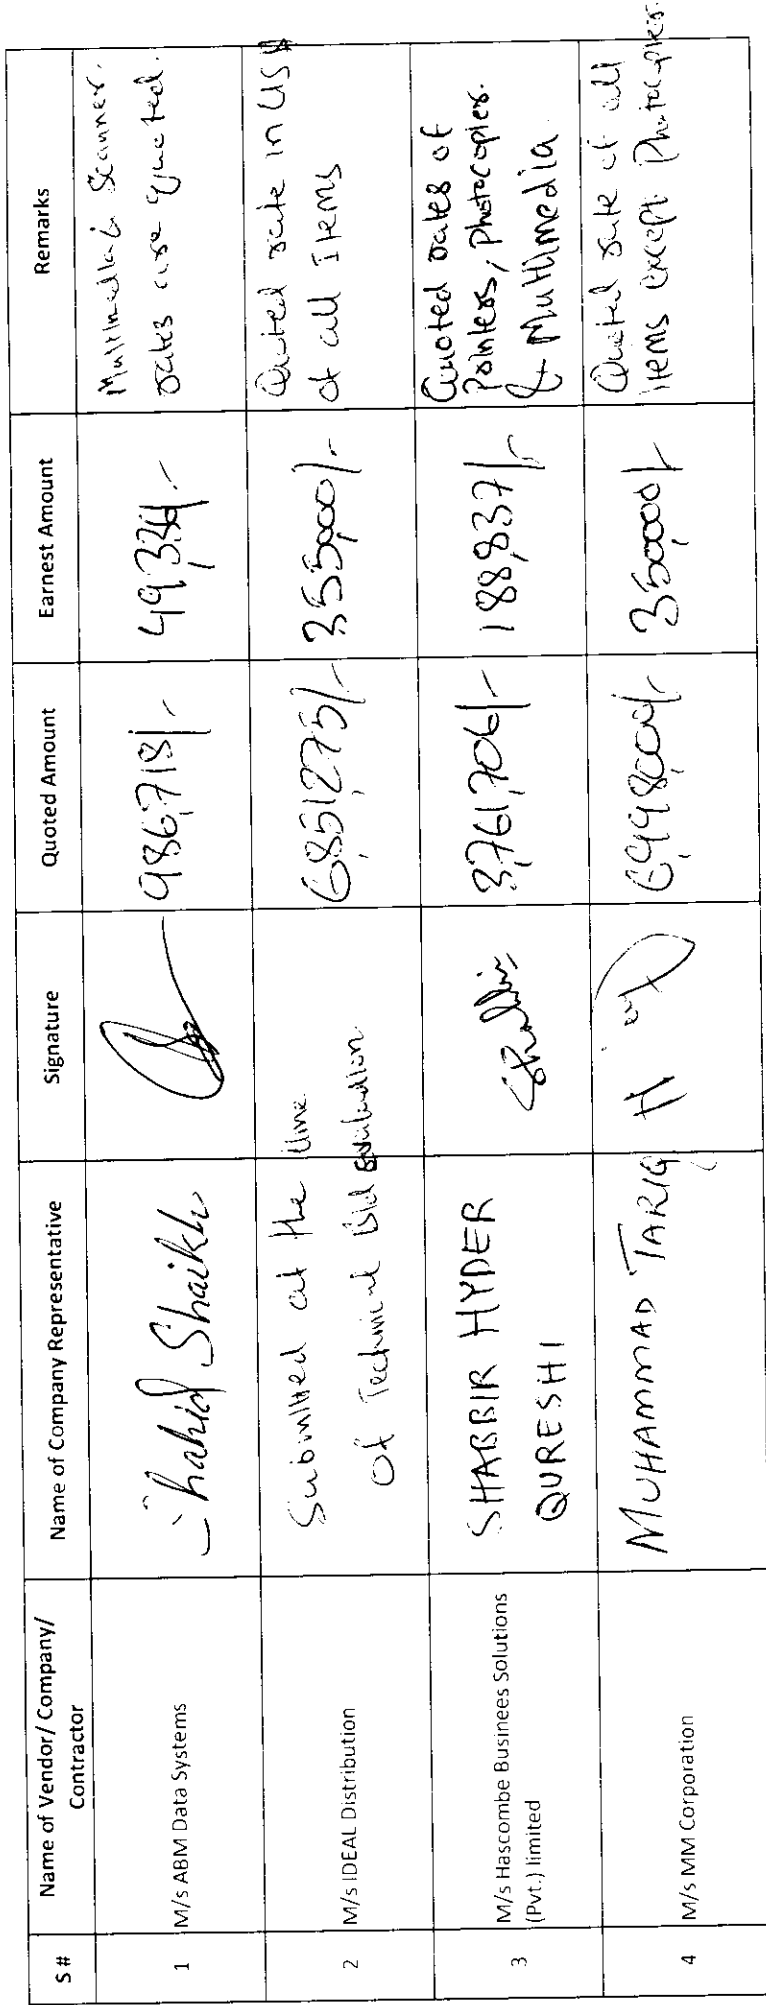 S #
Name of Vendor/ Company/
Contractor
Name of Company Representative
Signature
Quoted Amount
Earnest Amount
Remarks
1
M/s ABM Data Systems
Shahid Shaikh
986,718/-
49,336/-
Multimedia & Scanner.
rates are quoted.
2
M/s IDEAL Distribution
Submitted at the time
of Technical Bid Evaluation
6,851,275/-
355,000/-
Quoted rate in US $
of all Items
3
M/s Hascombe Businees Solutions
(Pvt.) limited
SHABBIR HYDER
QURESHI
3,761,706/-
188,837/-
Quoted rates of
Pointers, Photocopier.
& Multimedia
4
M/s MM Corporation
MUHAMMAD TARIQ
6,998,000/-
350,000/-
Quoted rate of all
items except Photocopier.